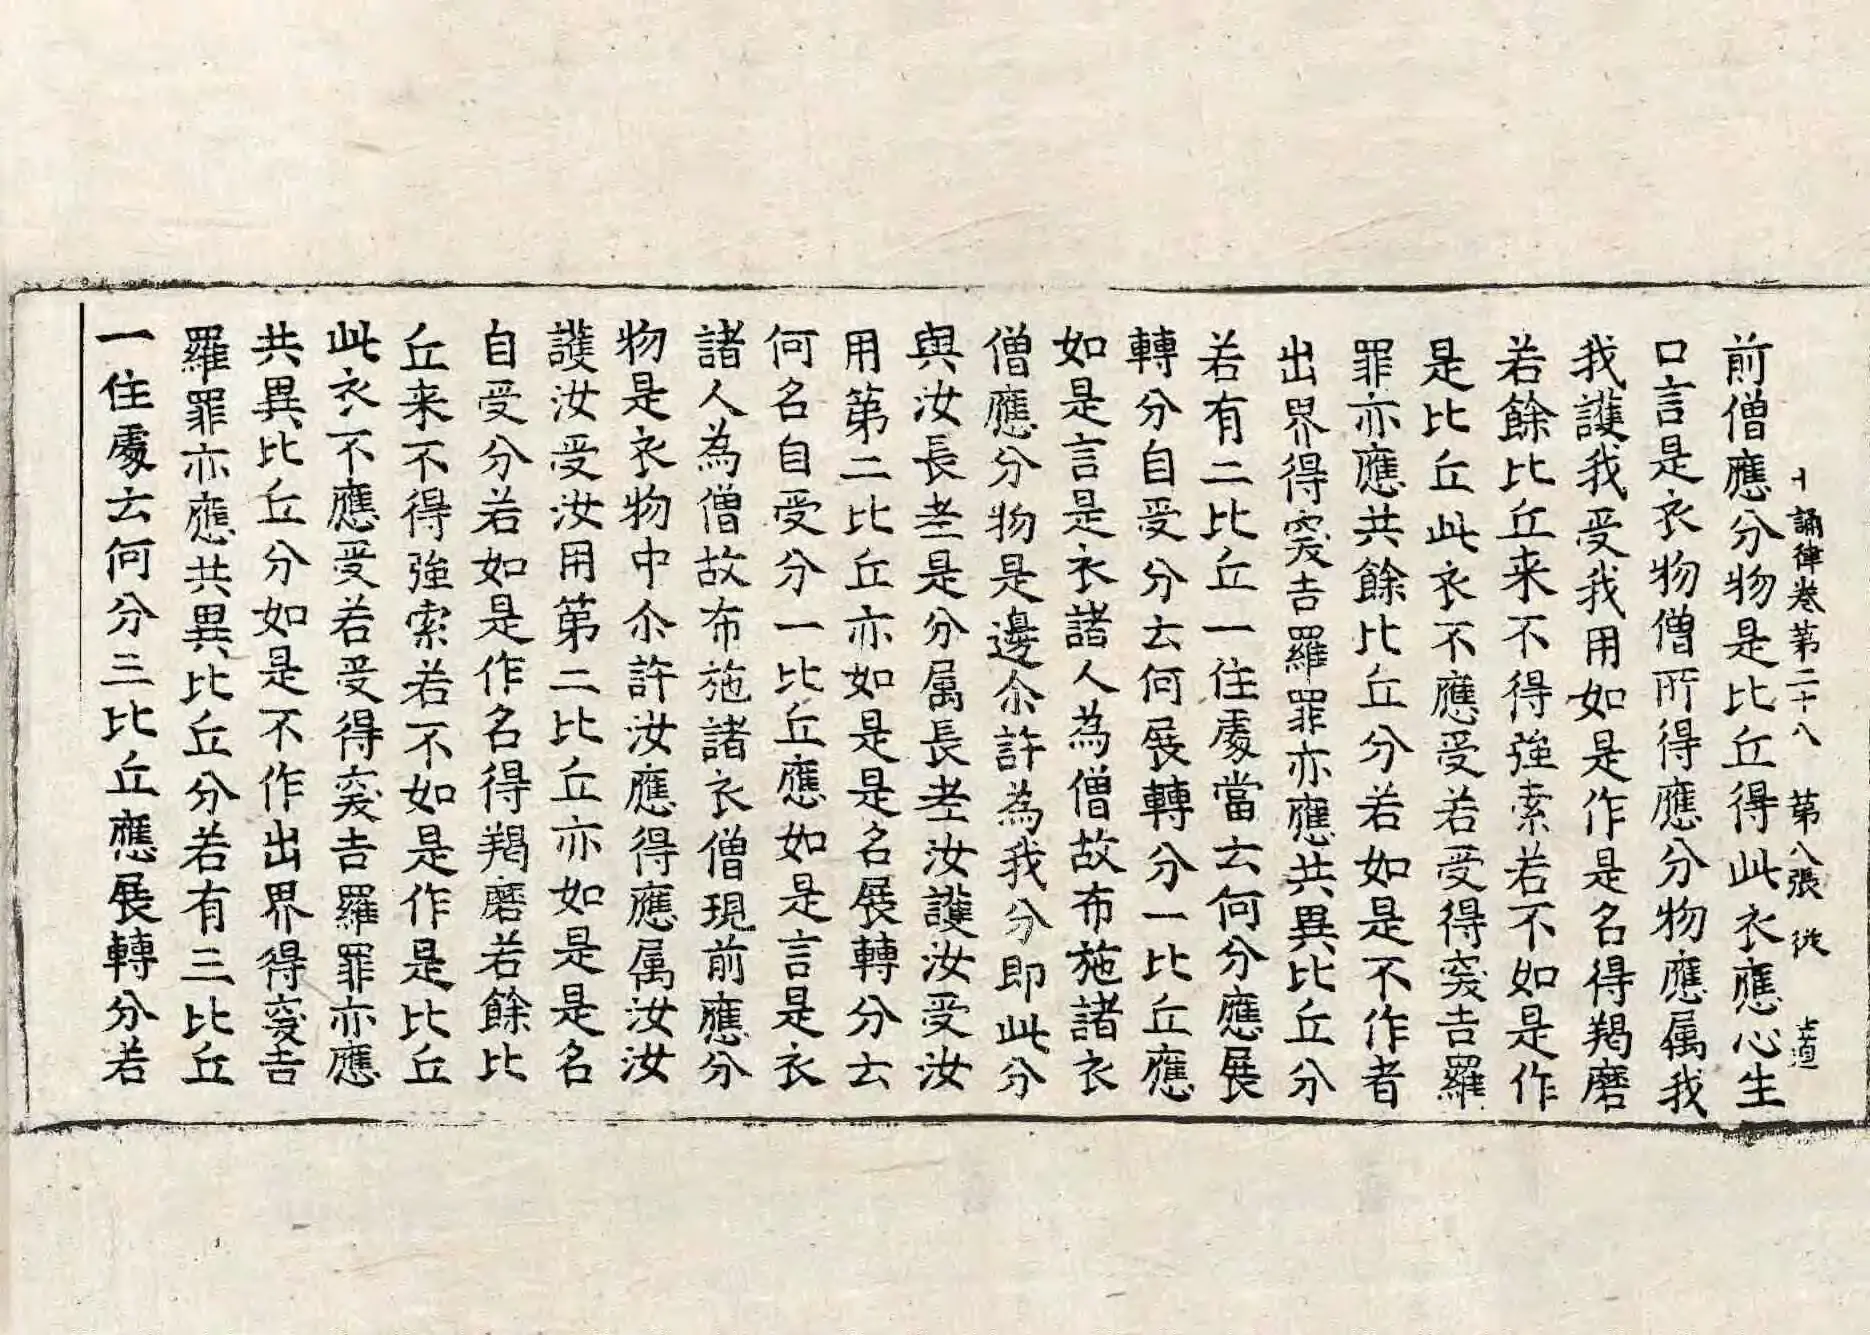 十誦律卷第二十八 第八張 從
前僧應分物是比丘得此衣應心生
口言是衣物僧所得應分物應属我
我護我受我用如是作是名得羯磨
若餘比丘来不得強索若不如是作
是比丘此衣不應受若受得突吉羅
罪亦應共餘比丘分若如是不作者
出界得突吉羅罪亦應共異比丘分
若有二比丘一住處當云何分應展
轉分自受分云何展轉分一比丘應
如是言是衣諸人為僧故布施諸衣
僧應分物是邊尒許為我分即此分
與汝長老是分属長老汝護汝受汝
用第二比丘亦如是是名展轉分云
何名自受分一比丘應如是言是衣
諸人為僧故布施諸衣僧現前應分
物是衣物中尒許汝應得應属汝汝
護汝受汝用第二比丘亦如是是名
自受分若如是作名得羯磨若餘比
丘来不得強索若不如是作是比丘
此衣不應受若受得突吉羅罪亦應
共異比丘分如是不作出界得突吉
羅罪亦應共異比丘分若有三比丘
一住處云何分三比丘應展轉分若